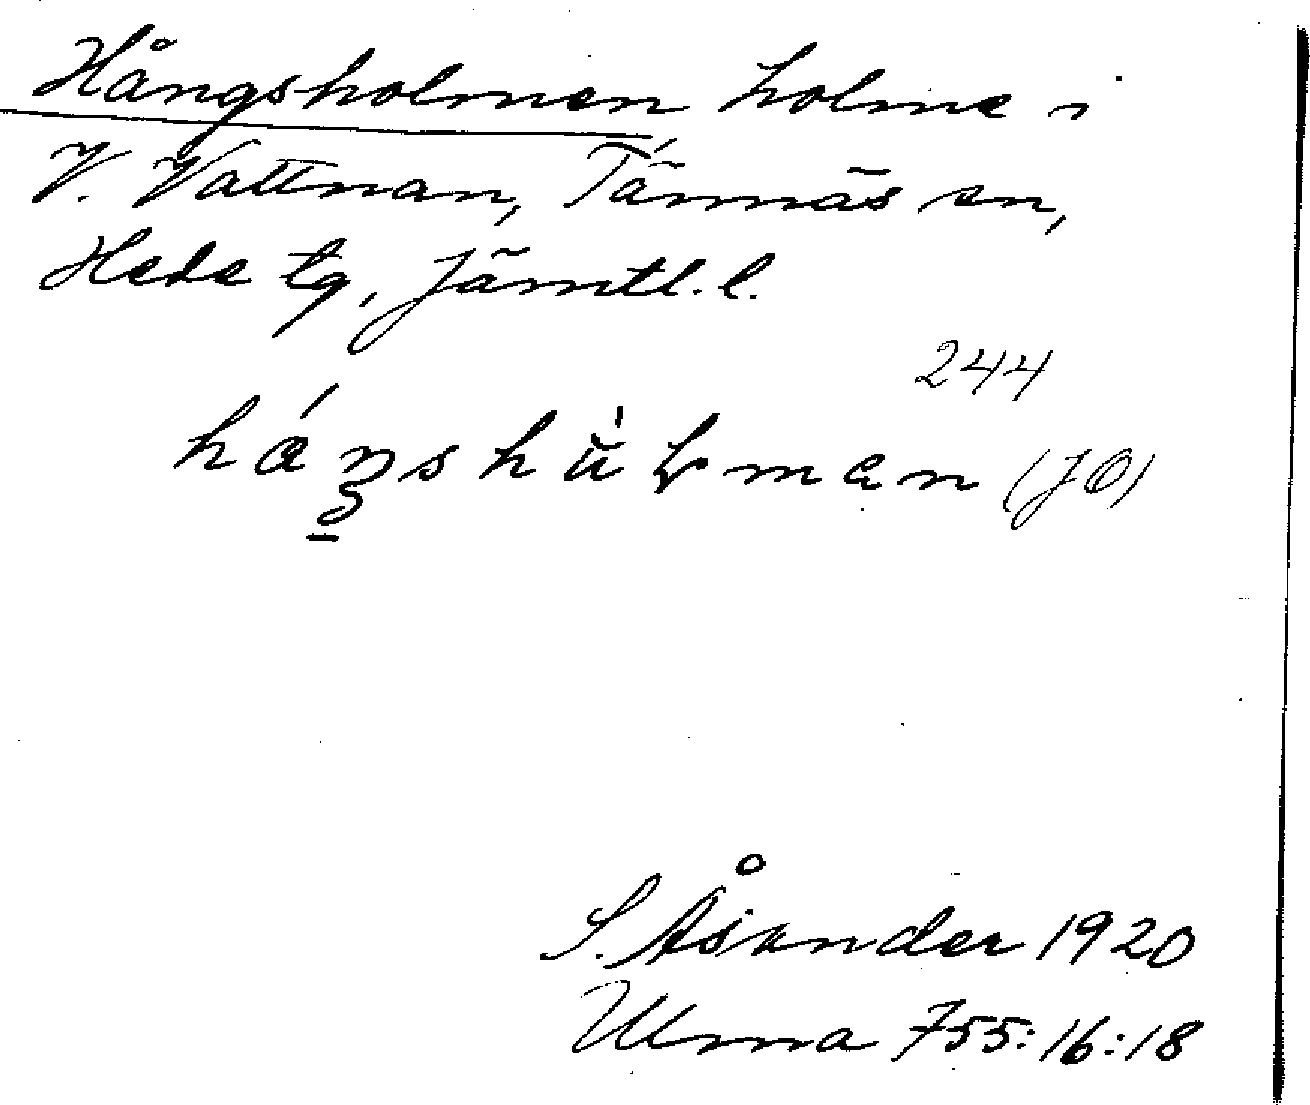 Hångsholmen holme i
V. Vattnan, Tännäs sn,
Hede tg, Jämtl. l.
244
(JO)
S. Åsander 1920
Ulma 755:16:18